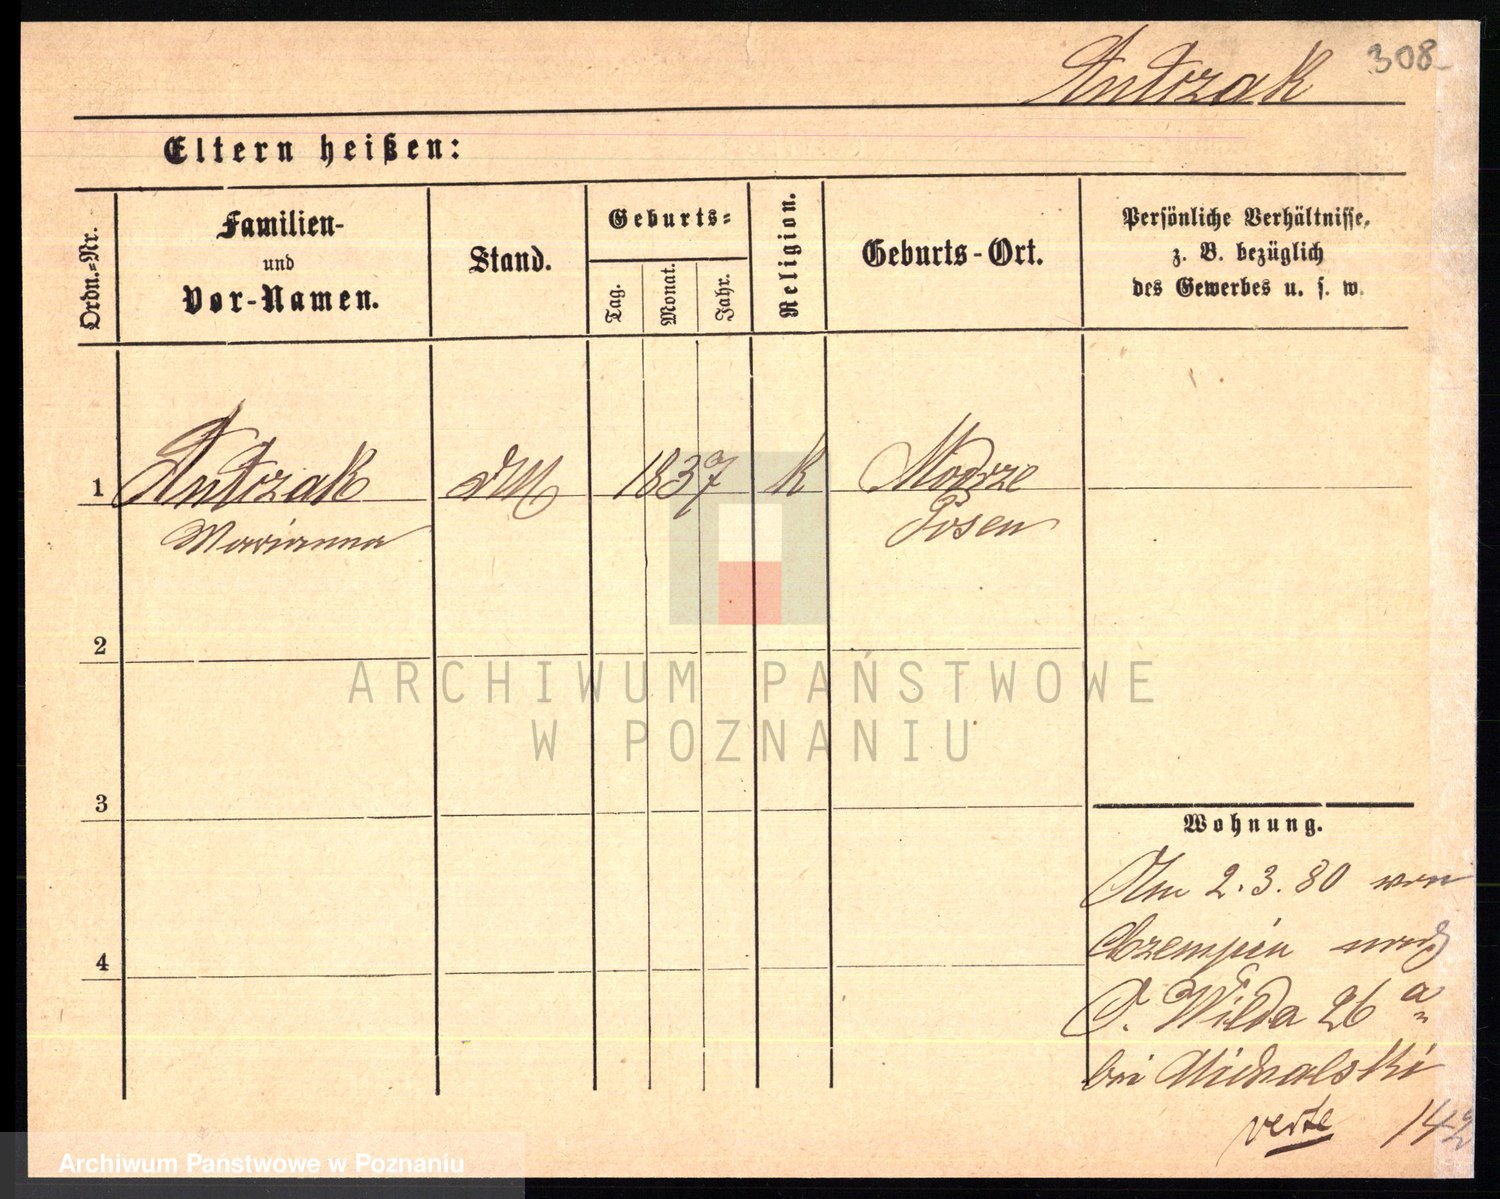 308
Antczak
Eltern heißen:
Ordn.=Nr.
Familien-
und
Vor-Namen.
Stand.
Geburts=
Tag.
Monat.
Jahr.
Religion.
Geburts-Ort.
Persönliche Verhältnisse,
z. B. bezüglich
des Gewerbes u. s. w.
1 Antczak DM 1837 k Modrze
Marianna Posen
2
3
4
Wohnung.
Am 2.3.80 von
Czempin nach
O. Wilda 26 a
bei Michalski
verte 142
ARCHIWUM PAŃSTWOWE
W POZNANIU
Archiwum Państwowe w Poznaniu